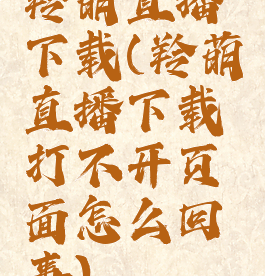 羚萌直播
下载(羚萌
直播下载
打不开页
面怎么回
事)